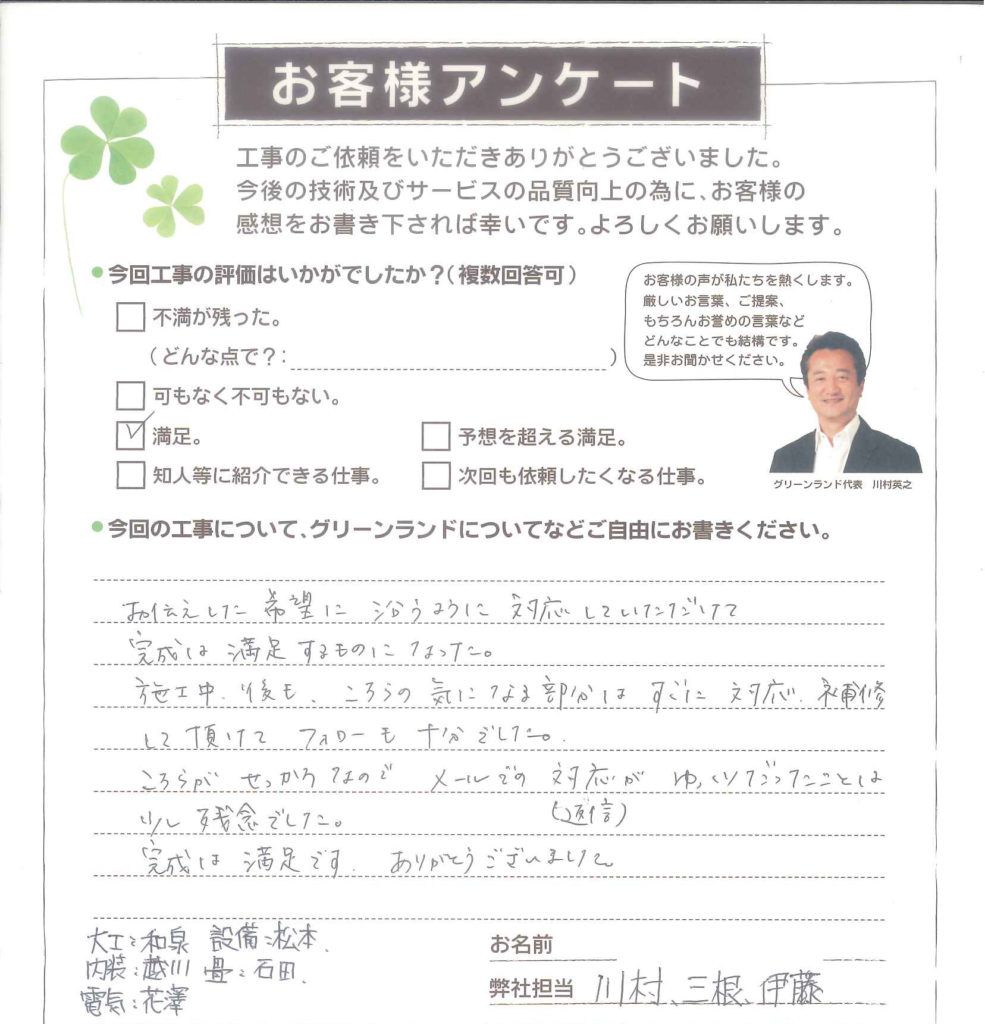 お客様アンケート
工事のご依頼をいただきありがとうございました。
今後の技術及びサービスの品質向上の為に、お客様の
感想をお書き下されば幸いです。よろしくお願いします。
●今回工事の評価はいかがでしたか？（複数回答可）
不満が残った。
（どんな点で？：　　　）
可もなく不可もない。
満足。
予想を超える満足。
知人等に紹介できる仕事。
次回も依頼したくなる仕事。
お客様の声が私たちを熱くします。
厳しいお言葉、ご提案、
もちろんお誉めの言葉など
どんなことでも結構です。
是非お聞かせください。
グリーンランド代表　川村英之
●今回の工事について、グリーンランドについてなどご自由にお書きください。
お伝えした希望に沿うように対応していただけて
完成は満足するものになった。
施工中、後も、こちらの気になる部分はすぐに対応、補修
して頂けてフォローも十分でした。
こちらがせっかちなので　メールでの対応がゆっくりだったことは
（返信）
少し残念でした。
完成は満足です。ありがとうございました
大工：和泉　設備：松本
内装：越川　畳：石田
電気：花澤
お名前
弊社担当　川村、三根、伊藤